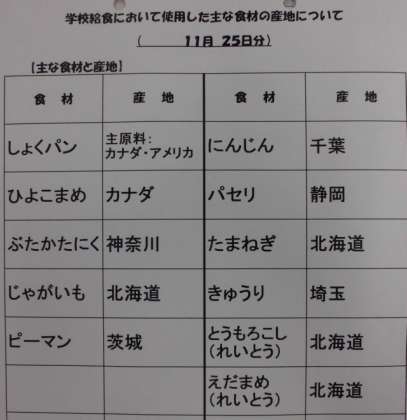 学校給食において使用した主な食材の産地について
( 11月 25日分)
【主な食材と産地】
食 材 産 地 食 材 産 地
しょくパン 主原料:
カナダ・アメリカ にんじん 千葉
ひよこまめ カナダ パセリ 静岡
ぶたかたにく 神奈川 たまねぎ 北海道
じゃがいも 北海道 きゅうり 埼玉
ピーマン 茨城 とうもろこし
(れいとう) 北海道
えだまめ
(れいとう) 北海道